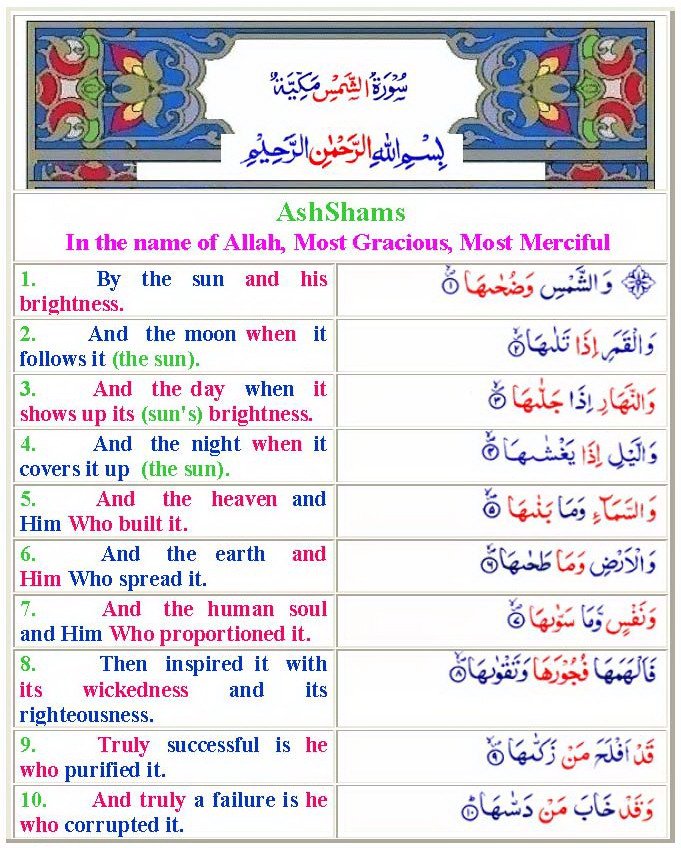 سُوْرَةُ الشَّمْسِ مَكِّيَّةٌ
بِسْمِ اللهِ الرَّحْمٰنِ الرَّحِيْمِ
AshShams
In the name of Allah, Most Gracious, Most Merciful
1. By the sun and his
brightness.
وَالشَّمْسِ وَضُحٰىهَا ۙ۱
2. And the moon when it
follows it (the sun).
وَالْقَمَرِ اِذَا تَلٰىهَا ۙ۲
3. And the day when it
shows up its (sun's) brightness.
وَالنَّهَارِ اِذَا جَلّٰىهَا ۙ۳
4. And the night when it
covers it up (the sun).
وَالَّيْلِ اِذَا يَغْشٰىهَا ۙ۴
5. And the heaven and
Him Who built it.
وَالسَّمَآءِ وَمَا بَنٰىهَا ۙ۵
6. And the earth and
Him Who spread it.
وَالْاَرْضِ وَمَا طَحٰىهَا ۙ۶
7. And the human soul
and Him Who proportioned it.
وَنَفْسٍ وَّمَا سَوّٰىهَا ۙ۷
8. Then inspired it with
its wickedness and its
righteousness.
فَاَلْهَمَهَا فُجُوْرَهَا وَتَقْوٰىهَا ۙ۸
9. Truly successful is he
who purified it.
قَدْ اَفْلَحَ مَنْ زَكّٰىهَا ۙ۹
10. And truly a failure is he
who corrupted it.
وَقَدْ خَابَ مَنْ دَسّٰىهَا ؕ۱۰